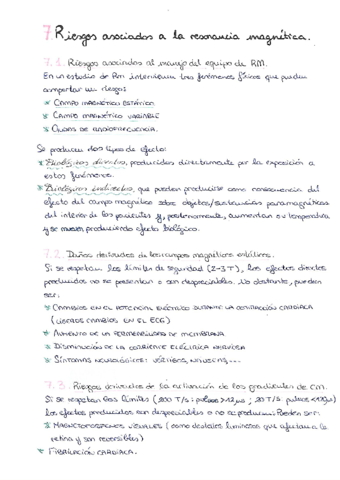 7. Riesgos asociados a la resonancia magnética.
7.1. Riesgos asociados al manejo del equipo de RM.
En un estudio de Rm intervienen tres fenómenos físicos que pueden
comportar un riesgo:
* CAMPO MAGNÉTICO ESTÁTICO.
* CAMPO MAGNÉTICO VARIABLE
* ONDAS DE RADIOFRECUENCIA.
Se producen dos tipos de efecto:
* Biológicos directos, producidos directamente por la exposición a
estos fenómenos.
* Biológicos indirectos, que pueden producirse como consecuencia del
efecto del campo magnético sobre objetos/sustancias paramagnéticas
del interior de los pacientes y, posteriormente, aumentan su temperatura
y se mueven, produciendo efecto biológico.
7.2. Daños derivados de los campos magnéticos estáticos.
Si se respetan los límites de seguridad (2-3 T), los efectos directos
producidos no se presentan o son despreciables. No obstante, pueden
ser:
* CAMBIOS EN EL POTENCIAL ELÉCTRICO DURANTE LA CONTRACCIÓN CARDÍACA
(LIGEROS CAMBIOS EN EL ECG)
* AUMENTO DE LA PERMEABILIDAD DE MEMBRANA.
* DISMINUCIÓN DE LA CORRIENTE ELÉCTRICA NERVIOSA
* SÍNTOMAS NEUROLÓGICOS: VÉRTIGOS, NÁUSEAS,...
7.3. Riesgos derivados de la activación de los gradientes de CM.
Si se respetan los límites (200 T/s: pulsos >12µs; 20 T/s. pulsos <120µs)
los efectos producidos son despreciables o no se producen. Pueden ser:
* MAGNETOFOSFENOS VISUALES (como destellos luminosos que afectan a la
retina y son reversibles)
* FIBRILACIÓN CARDÍACA.